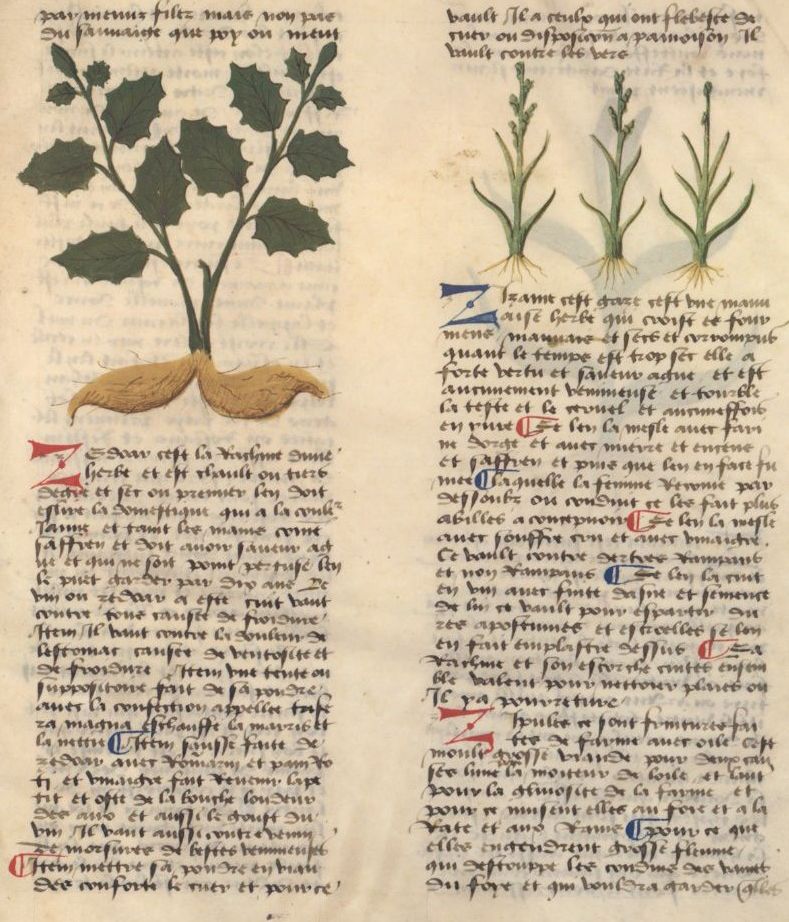 par menus filez mais non pas
du sauuaige que poy ou nient
ZEdoar cest la Rachine dune
herbe et est chault ou tiers
degre et sec ou premier len doit
eslire la domestique qui a la coulr
Jaune et taint les mains come
saffren et doit auoir saueur ag
ue et qui ne soit point percuse len
le puet garder par dix ans De
vin ou zedoar a este cuit vault
contre tous causes de froidure
Item Il vault contre la douleur de
lestomac causee de ventosite et
de froidure Item vne tente ou
suppositoire fait de sa pouldre
auec la confection appellee trife
ra magna eschauffe la marris et
la nettie Item sausse faite de
zedoar auec Romarin et pain Ro
ti et vinaigre fait Reuenir lape
tit et oste de la bouche loudeur
des aux et aussi le goust du
vin Il vault aussi contre venin
de morsures de bestes venimeuses
Item mettre sa pouldre en vian
des conforte le cuer et pour ce
vault Il a ceulx qui ont flebesce de
cuer ou disposicion a pamoison Il
vault contre les vers
ZIzanie cest gaze cest vne mauu
aise herbe qui croist es four
mens mauuais et secs et corrompus
quant le temps est trop sec elle a
forte vertu et saueur ague et est
aucunement venimeuse et tourble
la teste et le ceruel et aucuneffois
en yure Se len la mesle auec fari
ne dorge et auec mierre et encens
et saffren et puis que len en face fu
mee laquelle la femme Recoiue par
dessoubz ou conduit ce les fait plus
abilles a concepuoir Se len la mesle
auec souffre cru et auec vinaigre
Ce vault contre dertres Rampans
et non Rampans Se len la cuit
en vin auec fiente dasne et semence
de lin ce vault pour esparter du
res apostumes et escroelles se len
en fait emplastre dessus La
Rachine et son escorche cuites ensem
ble valent pour nettoier plaies ou
Il ya pourreture
ZIpules ce sont fritures fai
tes de farine auec oile Cest
moult grosse viande pour deux cau
ses lune la moiteur de loile et lautre
pour la gluuosite de la farine et
pour ce nuisent elles au foie et a la
Rate et aux Rains pour ce que
elles engendrent grosse fleume
qui destouppe les conduis des vaines
du foie et qui vouldra garder qlles